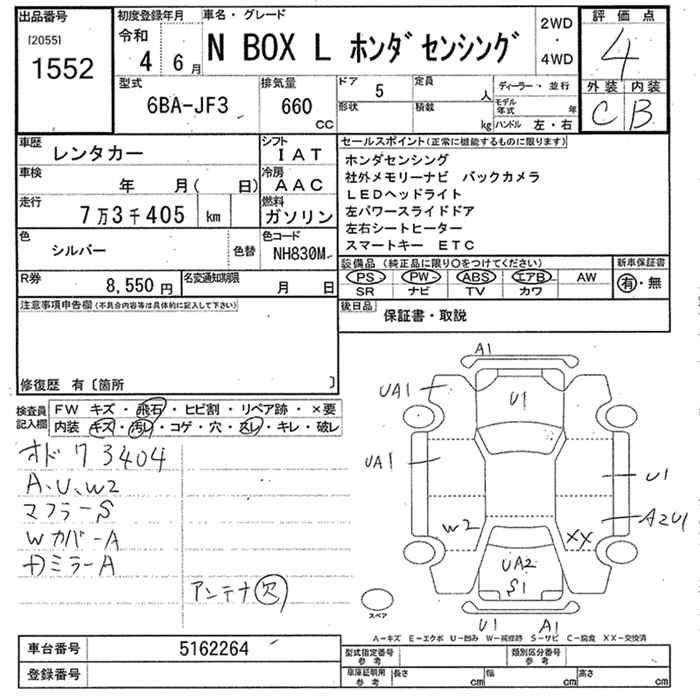 出品番号
[2055]
1552
初度登録年月
令和
4 6月
車名・グレード
N BOX L ホンダセンシング
2WD
・
4WD
評価点
4
外装 内装
C B
型式
6BA-JF3
排気量
660
cc
ドア 5
形状
定員 人
積載 kg
ディーラー・並行
モデル年式 年
ハンドル 左・右
車歴
レンタカー
シフト
IAT
車検
年 月( 日)
冷房
AAC
走行
7万3千405 km
燃料
ガソリン
色
シルバー
色替
色コード
NH830M
R券
8,550円
名変通知期限
月 日
セールスポイント(正常に機能するものに限ります)
ホンダセンシング
社外メモリーナビ バックカメラ
LEDヘッドライト
左パワースライドドア
左右シートヒーター
スマートキー ETC
装備品 (純正品に限り○をつけてください)
PS PW ABS エアB AW
SR ナビ TV カワ
新車保証書
有・無
後日品
保証書・取説
注意事項申告欄(不具合内容等は具体的に記入して下さい)
修復歴 有〔箇所 〕
検査員記入欄
FW キズ・飛石・ヒビ割・リペア跡・×要
内装 キズ・汚レ・コゲ・穴・スレ・キレ・破レ
オドワ3404
A、U、W2
マフラーS
Wカバー A
Dミラー A
アンテナ欠
A1
UA1
U1
UA1
U1
W2
XX
A2U1
UA2
S1
U1 A1
スペア
A-キズ E-エクボ U-凹み W-補修跡 S-サビ C-腐食 XX-交換済
車台番号
5162264
登録番号
型式指定番号
参考
類別区分番号
参考
車庫証明用
参考
長さ cm
幅 cm
高さ cm